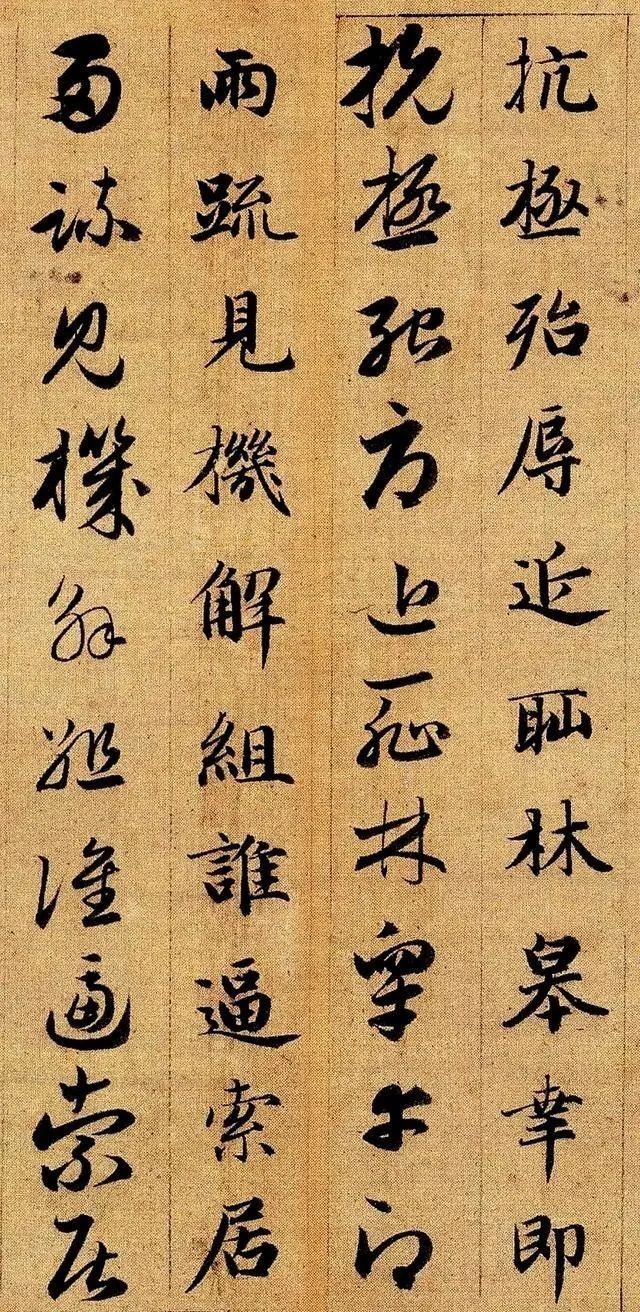 抗極殆辱近耻林皋幸即
抗極殆辱近耻林皋幸即
兩疏見機解組誰逼索居
兩疏見機解組誰逼索居